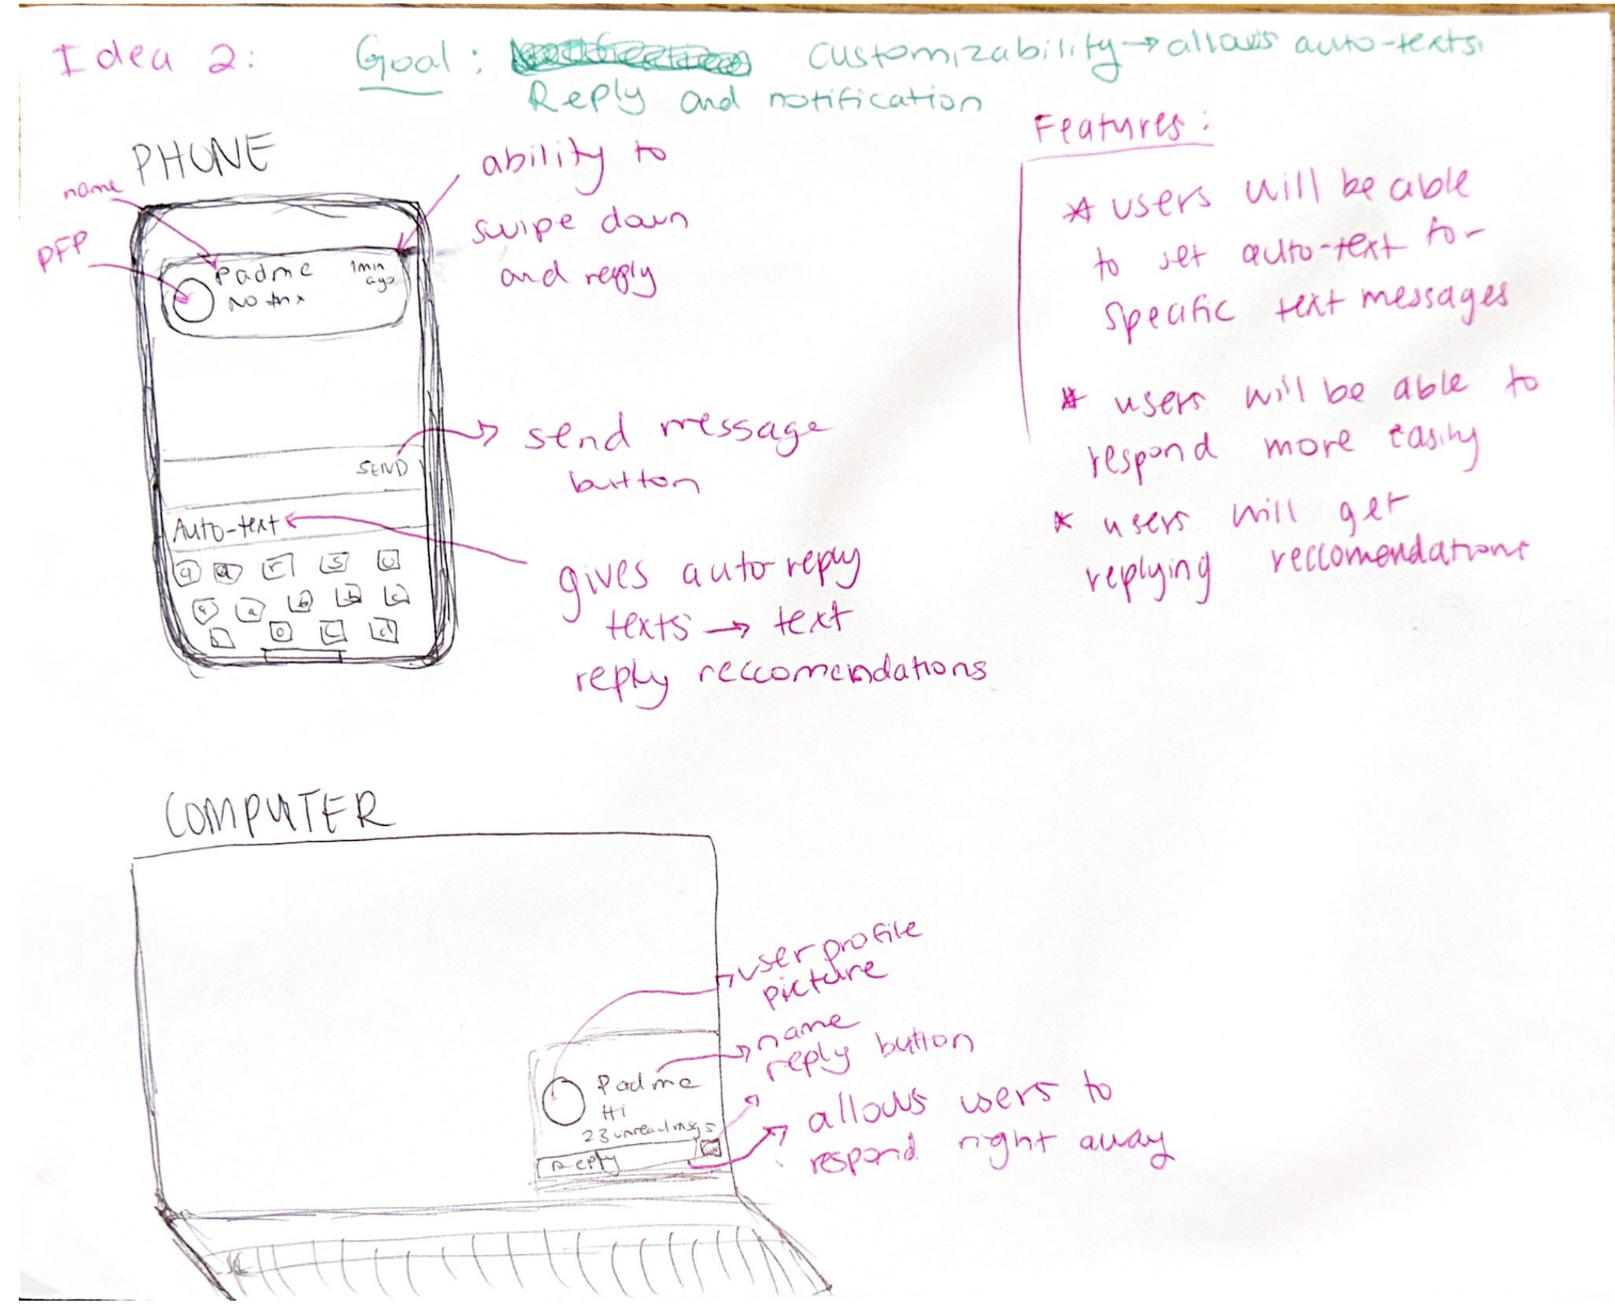 Idea 2:
Goal: customizability → allows auto-texts.
Reply and notification
PHONE
name
PFP
Padme
1min
ago
No thx
ability to
swipe down
and reply
SEND
send message
button
Auto-text
gives auto-reply
texts → text
reply reccomendations
Features:
* users will be able
to set auto-text for
specific text messages
* users will be able to
respond more easily
* users will get
replying reccomendations
COMPUTER
user profile
picture
name
reply button
allows users to
respond right away
Padme
Hi
23 unread msgs
Reply